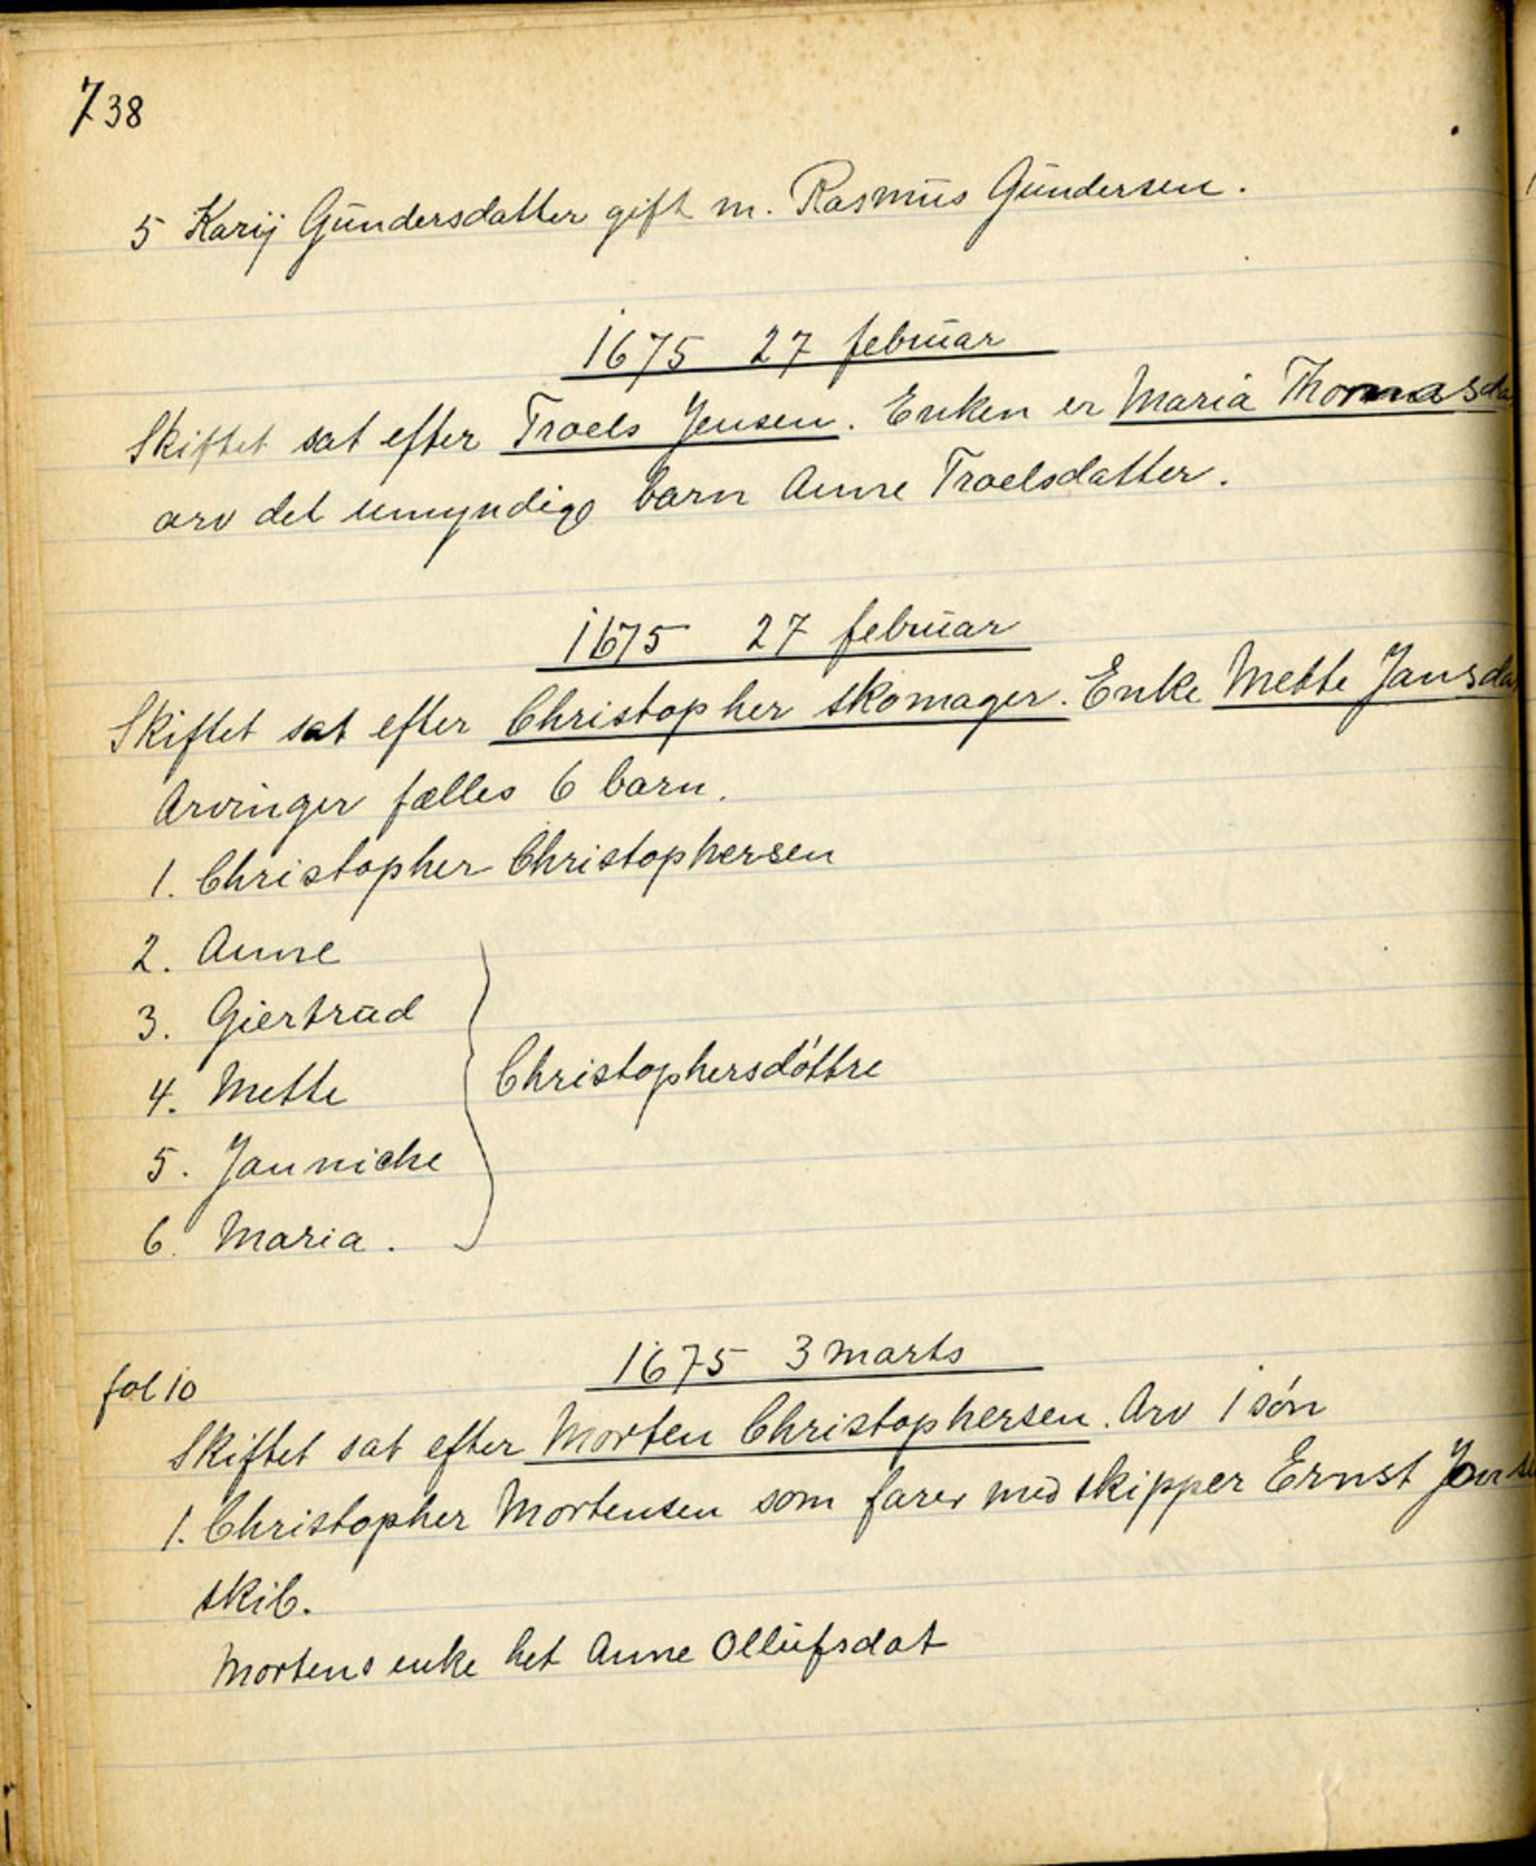 738
5 Karij Gundersdatter gift m. Rasmus Gundersen.
1675 27 februar
Skiftet sat efter Troels Jensen. Enken er Maria Thomasda
arv det umyndige barn Anne Troelsdatter.
1675 27 februar
Skiftet sat efter Christopher skomager. Enke Mette Jansda
Arvinger fælles 6 barn.
1. Christopher Christophersen
2. Anne
3. Giertrud
4. Mette
Christophersdóttre
5. Janniche
6. Maria.
1675 3 marts
fol 10
Skiftet sat efter Morten Christophersen. Arv 1 són
1. Christopher Mortensen som farer med skipper Ernst Janse
skib.
Mortens enke het Anne Ollufsdat